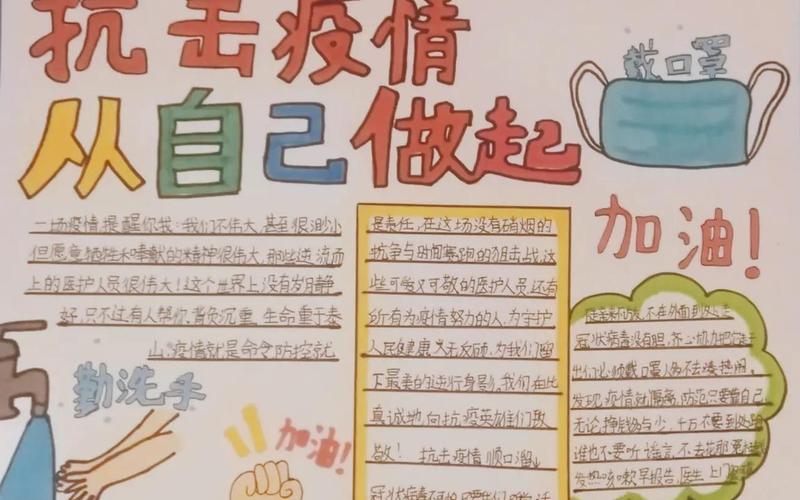 抗击疫情
从自己做起
戴口罩
加油!
一场疫情,提醒你我:我们不伟大,甚至很渺小
但愿意牺牲和奉献的精神很伟大,那些逆流而
上的医护人员很伟大!这个世界上没有岁月静
好,只不过有人帮你背负沉重 生命重于泰
山,疫情就是命令防控就
勤洗手
加油!
是责任,在这场没有硝烟的
抗争与时间赛跑的狙击战,这
些可爱又可敬的医护人员,还有
所有为疫情努力的人,为守护
人民健康义无反顾,为我们留
下最美的逆行身影,我们在此
真诚地,向抗疫英雄们致
敬! 抗击疫情 顺口溜
冠状病毒
不在外面到处走
冠状病毒没有胆,齐心协力把它
出们必须戴口罩人多不去凑热闹,
发现疫情就
防范只要靠自己
无论挣钱多与少,千万不要到处跑
谁也不要听谣言,不去
发热咳嗽早报告,医生上门